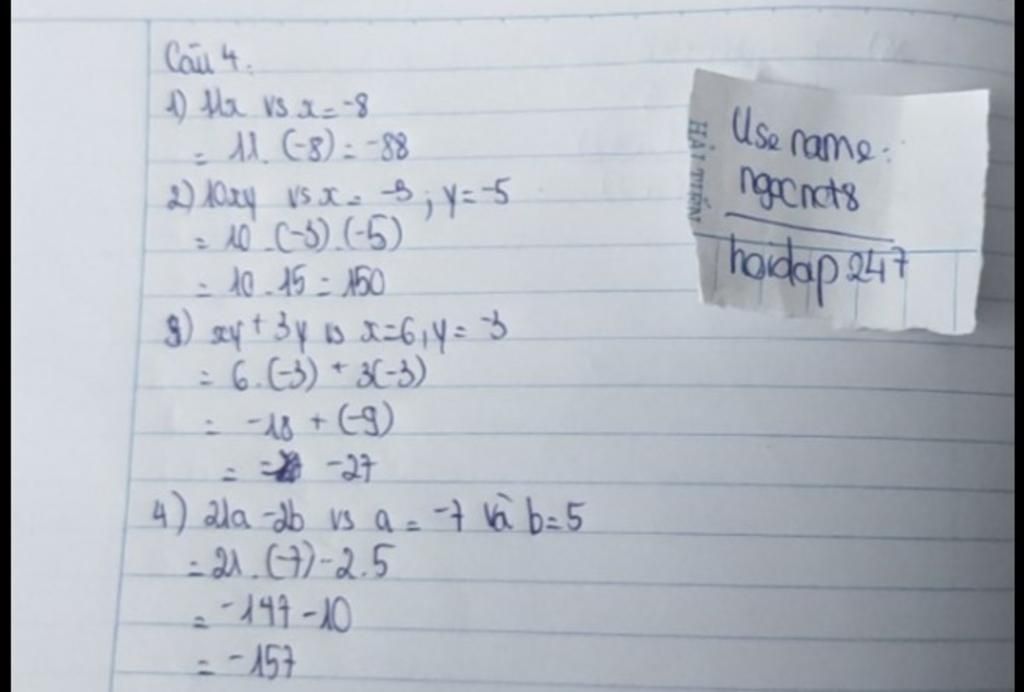 Câu 4:
1) 11x vs x = -8
= 11. (-8) = -88
2) 10xy vs x = -3; y = -5
= 10 . (-3) . (-5)
= 10 . 15 = 150
3) xy + 3y vs x=6, y = -3
= 6. (-3) + 3(-3)
= -18 + (-9)
= -27
4) 21a - 2b vs a = -7 và b = 5
= 21. (-7) - 2.5
= -147 - 10
= -157
HẢI TIẾN
Use name:
ngocnct8
hoidap247